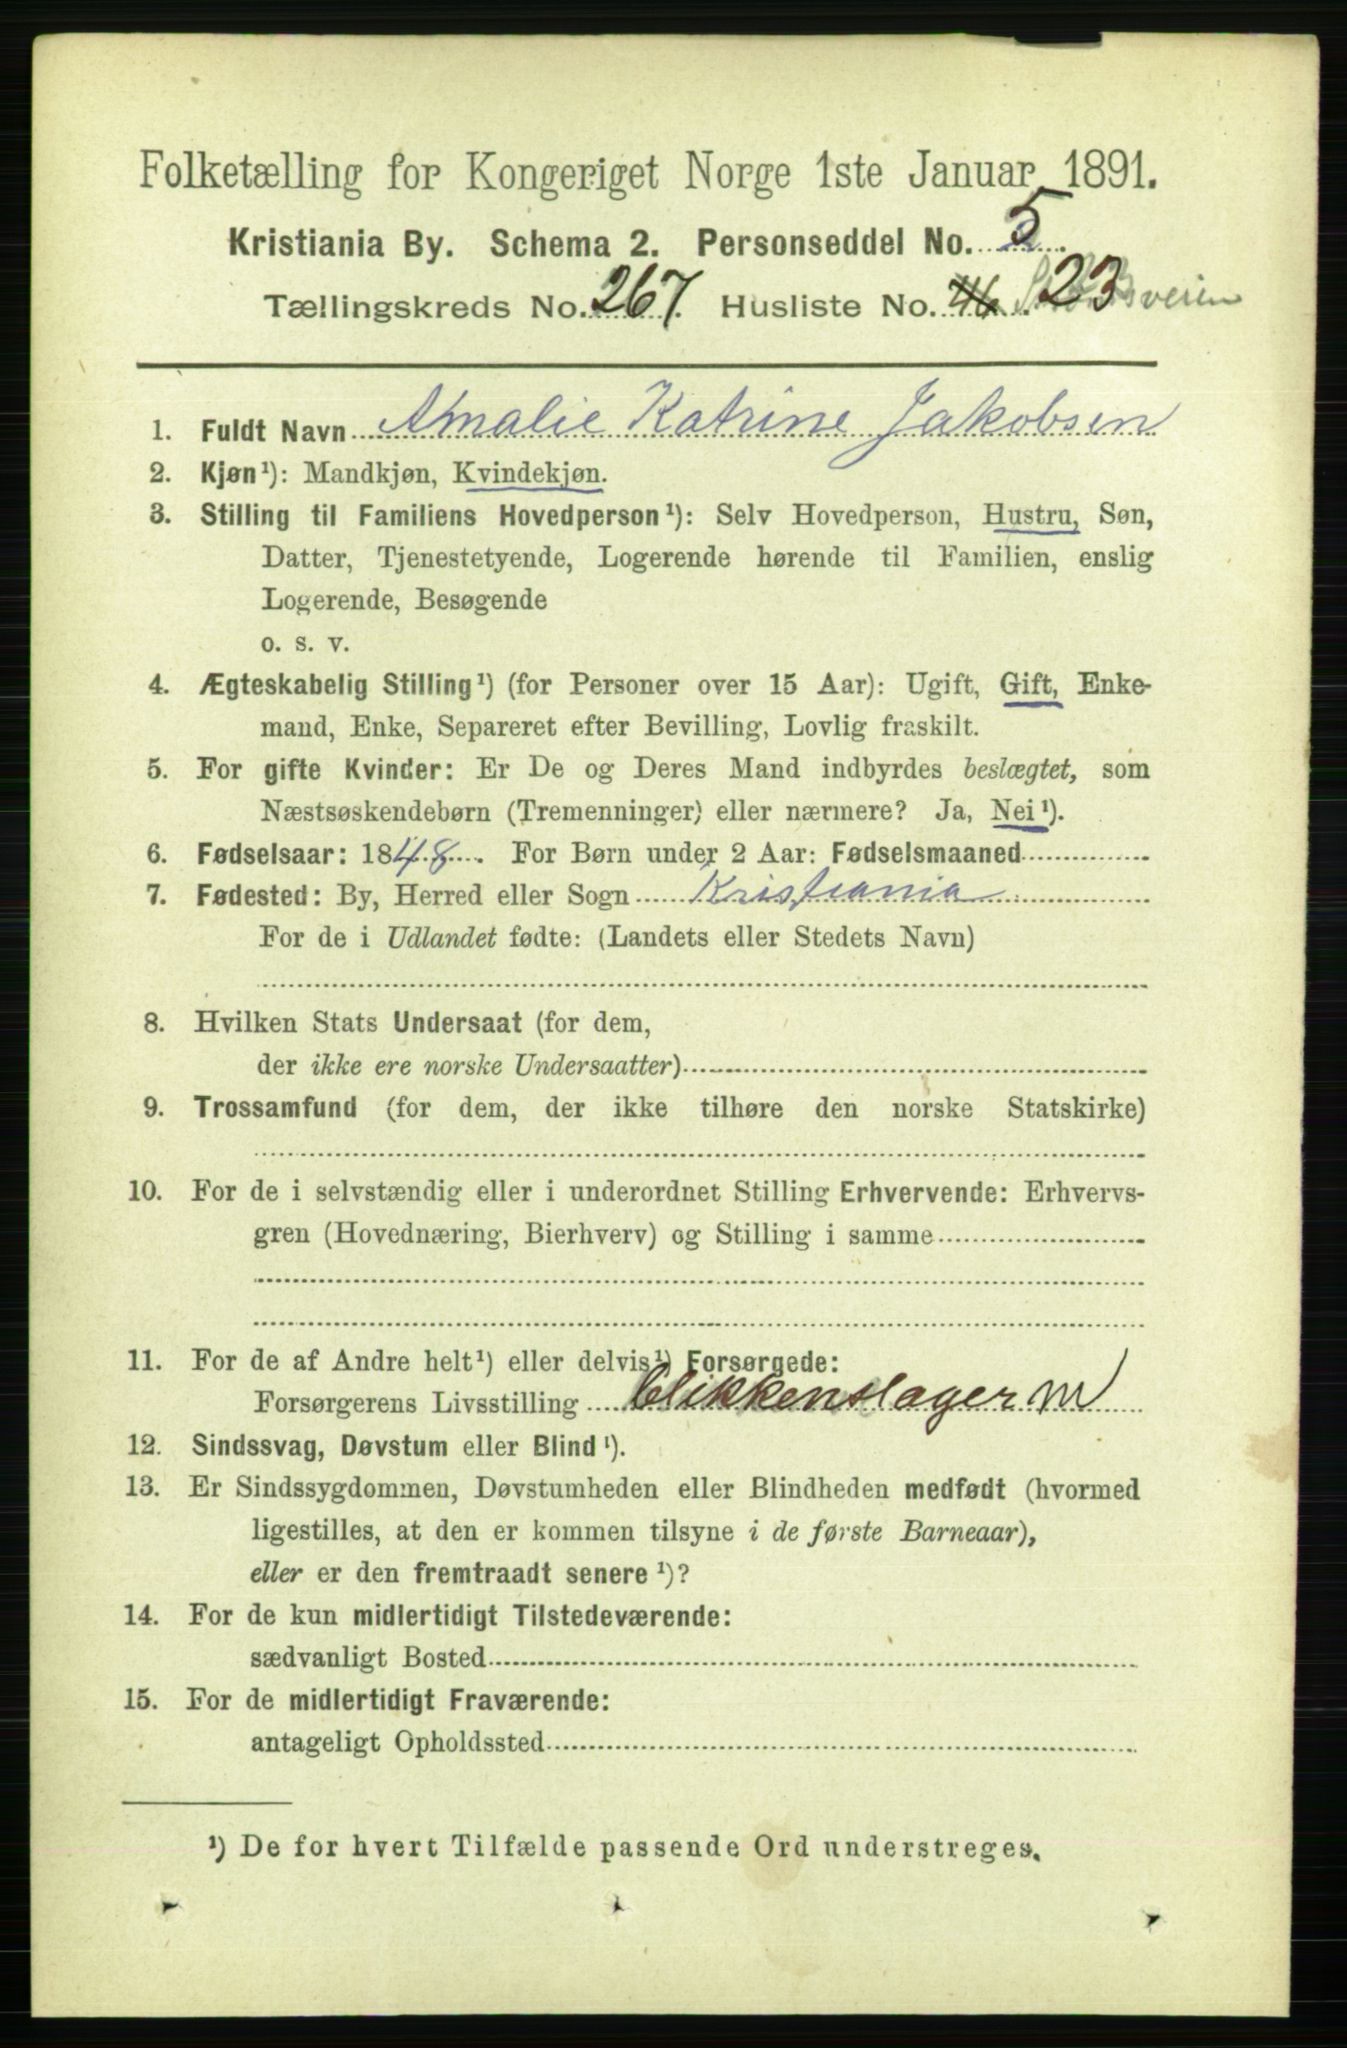 Folketælling for Kongeriget Norge 1ste Januar 1891.
Kristiania By. Schema 2. Personseddel No. 5.
Tællingskreds No. 267. Husliste No. 23
1. Fuldt Navn Amalie Katrine Jakobsen
2. Kjøn¹): Mandkjøn, Kvindekjøn.
3. Stilling til Familiens Hovedperson¹): Selv Hovedperson, Hustru, Søn,
Datter, Tjenestetyende, Logerende hørende til Familien, enslig
Logerende, Besøgende
o. s. v.
4. Ægteskabelig Stilling¹) (for Personer over 15 Aar): Ugift, Gift, Enke-
mand, Enke, Separeret efter Bevilling, Lovlig fraskilt.
5. For gifte Kvinder: Er De og Deres Mand indbyrdes beslægtet, som
Næstsøskendebørn (Tremenninger) eller nærmere? Ja, Nei¹).
6. Fødselsaar: 1848. For Børn under 2 Aar: Fødselsmaaned
7. Fødested: By, Herred eller Sogn Kristiania
For de i Udlandet fødte: (Landets eller Stedets Navn)
8. Hvilken Stats Undersaat (for dem,
der ikke ere norske Undersaatter)
9. Trossamfund (for dem, der ikke tilhøre den norske Statskirke)
10. For de i selvstændig eller i underordnet Stilling Erhvervende: Erhvervs-
gren (Hovednæring, Bierhverv) og Stilling i samme
11. For de af Andre helt¹) eller delvis¹) Forsørgede:
Forsørgerens Livsstilling blikkenslager m
12. Sindssvag, Døvstum eller Blind¹).
13. Er Sindssygdommen, Døvstumheden eller Blindheden medfødt (hvormed
ligestilles, at den er kommen tilsyne i de første Barneaar),
eller er den fremtraadt senere¹)?
14. For de kun midlertidigt Tilstedeværende:
sædvanligt Bosted
15. For de midlertidigt Fraværende:
antageligt Opholdssted
¹) De for hvert Tilfælde passende Ord understreges.